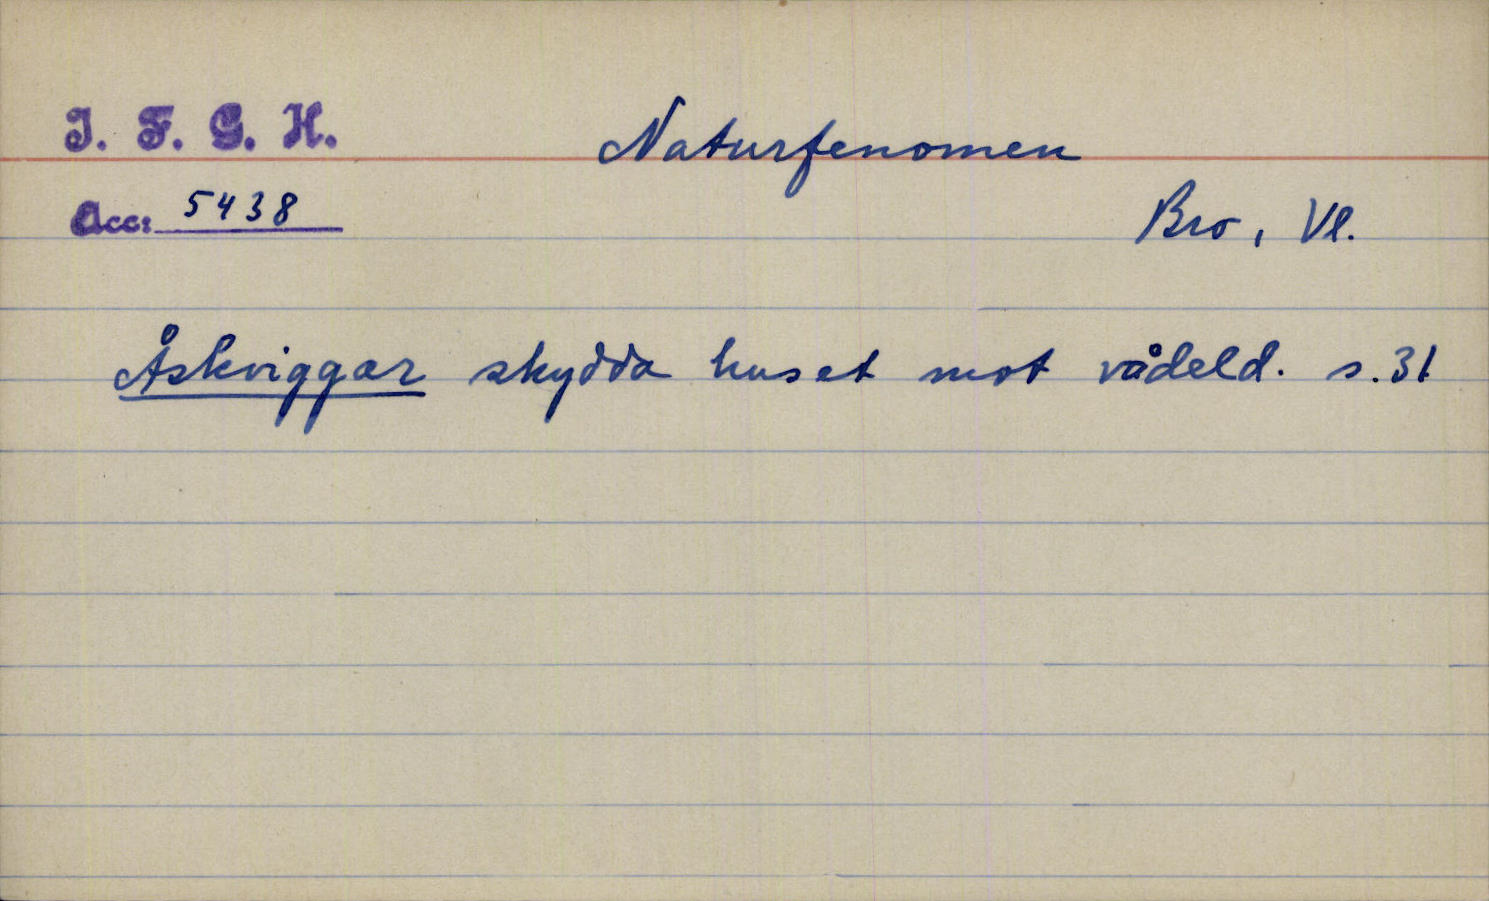 I. F. G. H.
Naturfenomen
Acc: 5438
Bro, Vl.
Åskviggar skydda huset mot vådeld. s. 31